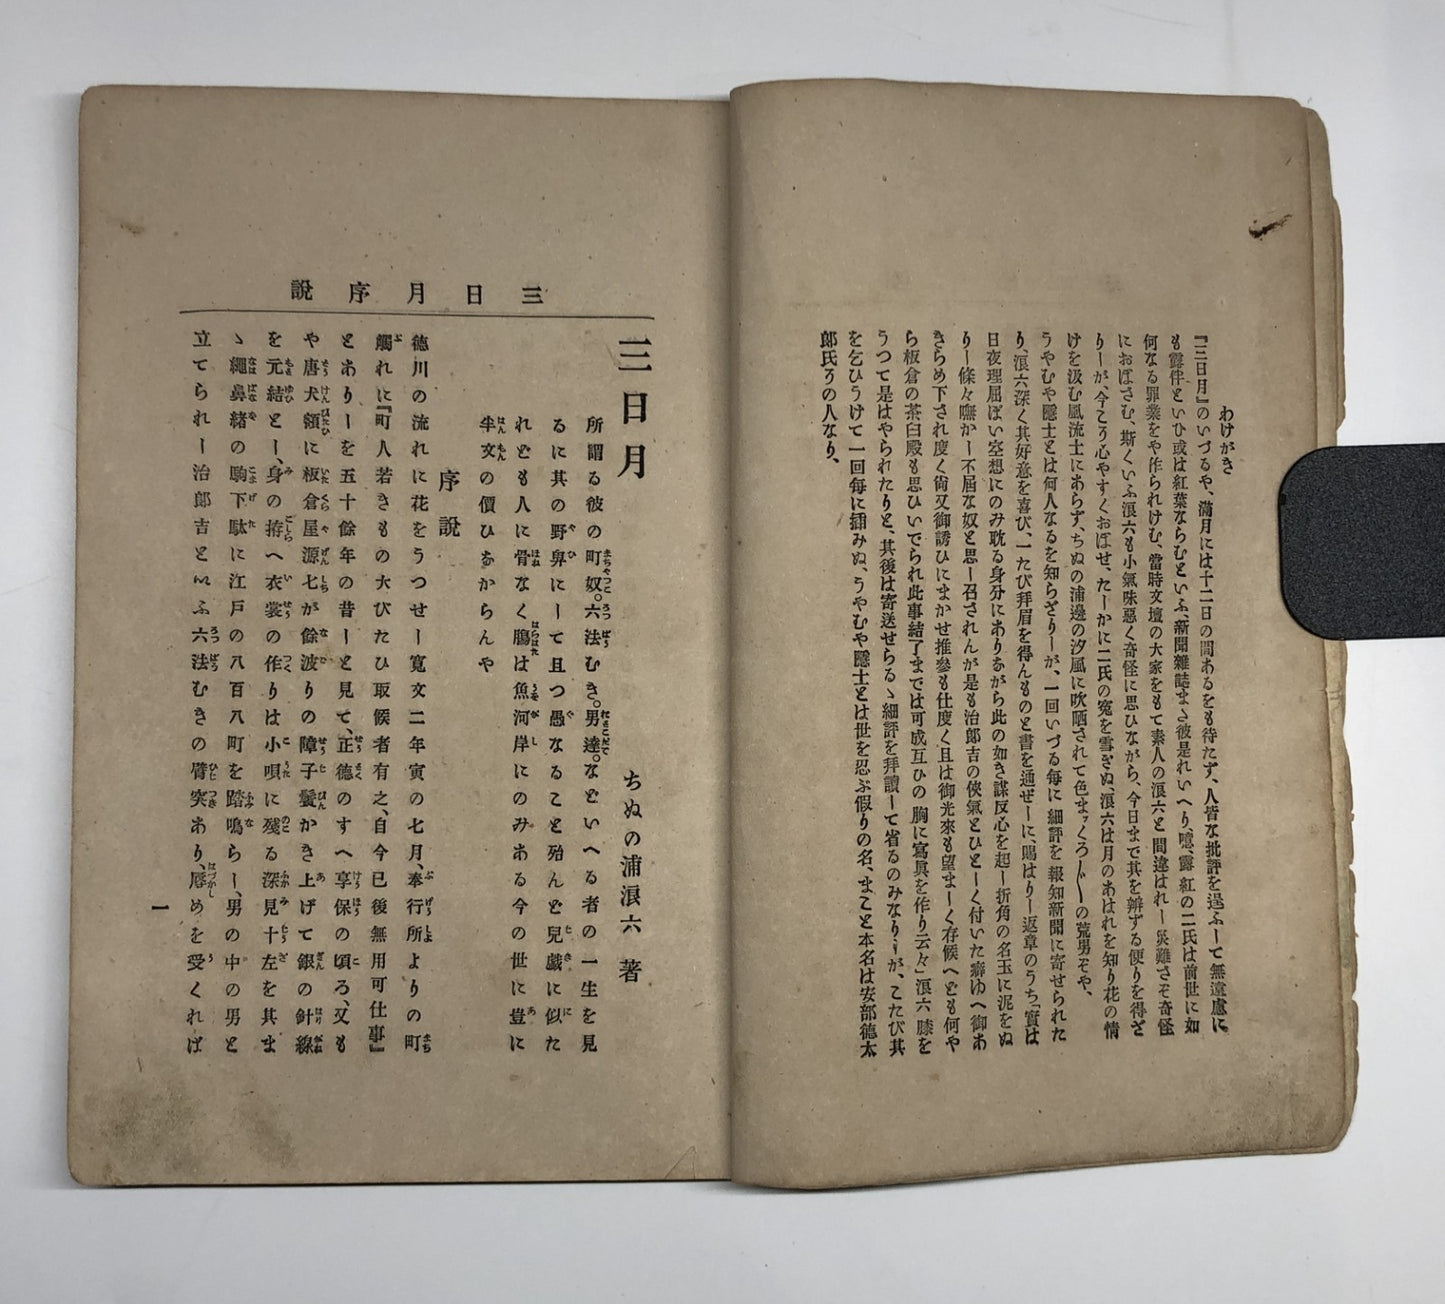 わけがき
『三日月』のいづるや、滿月には十二日の間あるをも待たず、人皆な批評を逞ふして無遠慮に
も露伴といひ或は紅葉ならむといふ、新聞雜誌まゝ彼是れいへり、噫、露紅の二氏は前世に如
何なる罪業をや作られけむ、當時文壇の大家をもて素人の浪六と間違はれし災難さぞ奇怪
におぼさむ、斯くいふ浪六も小氣味惡く奇怪に思ひながら、今日まで其を辨ずる便りを得ざ
りしが、今こう心やすくおぼせ、たしかに二氏の寃を雪ぎぬ、浪六は月のあはれを知り花の情
けを汲む風流士にあらず、ちぬの浦邊の汐風に吹晒されて色まッくろ〲しの荒男ぞや、
うやむや隱士とは何人なるを知らざりしが、一回いづる毎に細評を報知新聞に寄せられた
り、浪六深く其好意を喜び、一たび拜眉を得んものと書を通ぜしに、賜はりし返章のうち「實は
日夜理屈ぽい空想にのみ耽る身分にありながら此の如き謀反心を起し折角の名玉に泥をぬ
りし條々嘸かし不屆な奴と思し召されんが是も治郎吉の俠氣とひとしく付いた癖ゆへ御あ
きらめ下され度く尙又御誘ひにまかせ推參も仕度く且は御光來も望ましく存候へども何や
ら板倉の茶臼殿も思ひいでられ此事結了までは可成互ひの胸に寫眞を作り云々」浪六膝を
うつて是はやられたりと、其後は寄送せらるゝ細評を拜讀して省るのみなりしが、こたび其
を乞ひうけて一回毎に揷みぬ、うやむや隱士とは世を忍ぶ假りの名、まこと本名は安部德太
郎氏ろの人なり、
三日月序說
三日月
ちぬの浦浪六著
所謂る彼の町奴。六法むき。男達。などいへる者の一生を見
るに其の野卑にして且つ愚なること殆んど兒戲に似た
れども人に骨なく膓は魚河岸にのみある今の世に豈に
半文の價ひなからんや
序說
德川の流れに花をうつせし寬文二年寅の七月、奉行所よりの町
觸れに『町人若きもの大びたひ取候者有之、自今已後無用可仕事』
とありしを五十餘年の昔しと見て、正德のすへ享保の頃ろ、又も
や唐犬額に板倉屋源七が餘波りの障子鬢かき上げて銀の針線
を元結とし、身の拵へ衣裳の作りは小唄に殘る深見十左を其ま
ゝ繩鼻緖の駒下駄に江戶の八百八町を踏鳴らし、男の中の男と
立てられし治郎吉といふ六法むきの臂突あり、辱めを受くれば
一